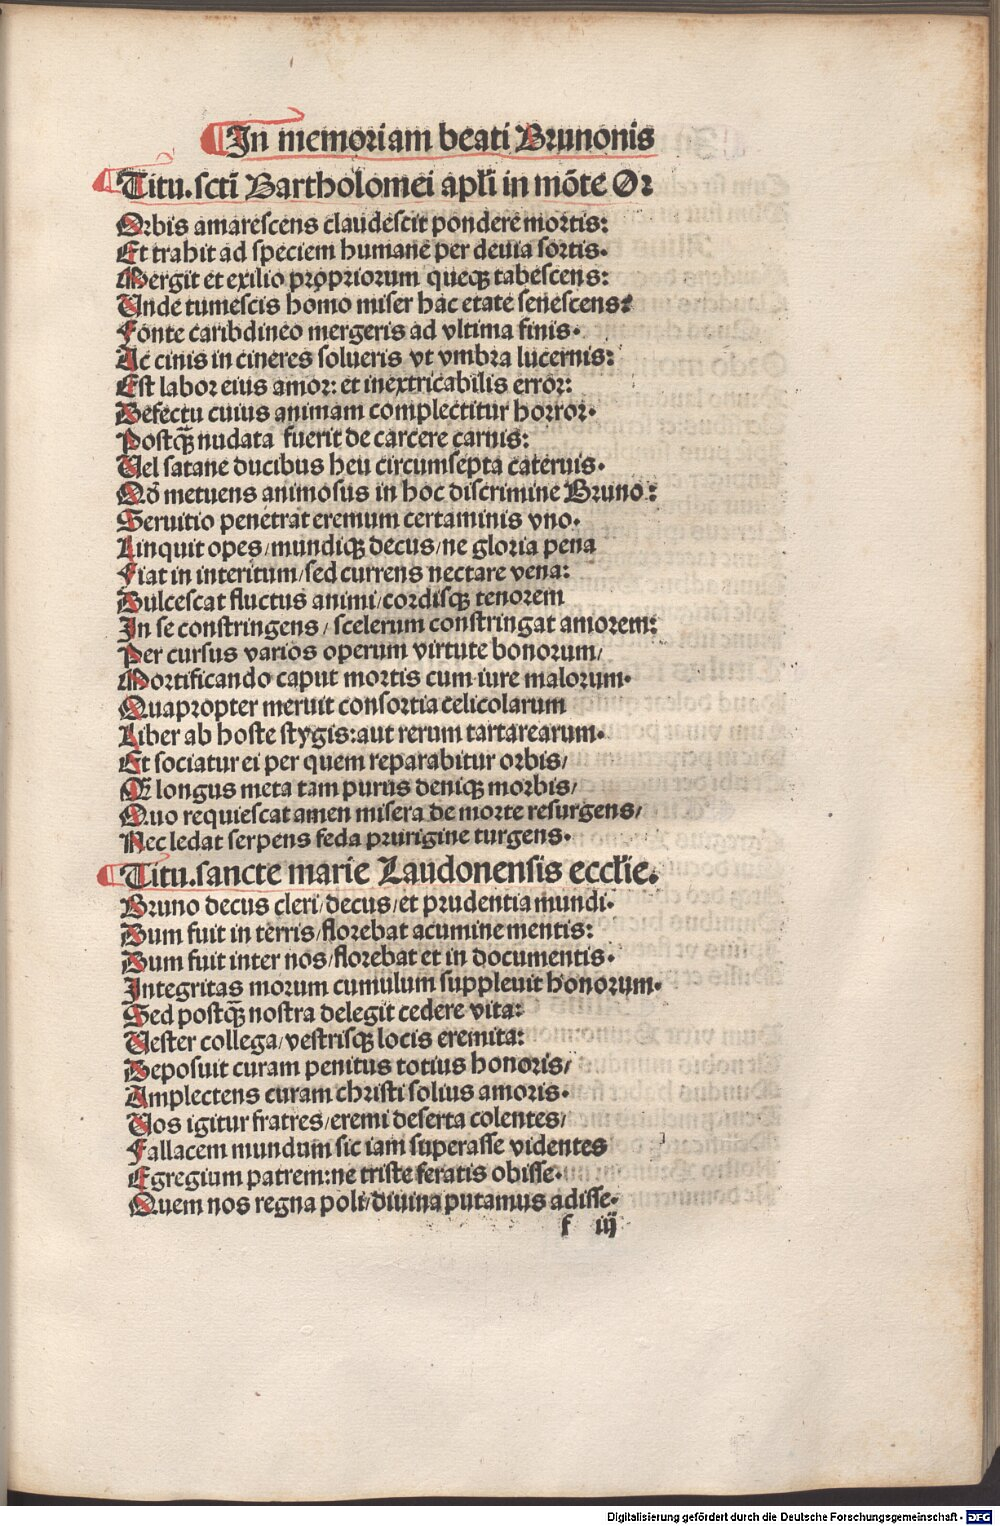 In memoriam beati Brunonis
Titu. scti Bartholomei apli in mōte Or
Orbis amarescens claudescit pondere mortis:
Et trahit ad speciem humane per deuia sortis.
Mergit et exilio propriorum queqꝫ tabescens:
Unde tumescis homo miser hac etate senescens:
Fonte caribdineo mergeris ad vltima finis.
Ac cinis in cineres solueris vt vmbra lucernis:
Est labor eius amor: et inextricabilis error:
Defectu cuius animam complectitur horror.
Postqꝫ̄ nudata fuerit de carcere carnis:
Uel satane ducibus heu circumsepta cateruis.
Qđ metuens animosus in hoc discrimine Bruno:
Seruitio penetrat eremum certaminis vno.
Linquit opes/mundiqꝫ decus/ne gloria pena
Fiat in interitum/sed currens nectare vena:
Dulcescat fluctus animi/cordisqꝫ tenorem
In se constringens/scelerum constringat amorem:
Per cursus varios operum virtute bonorum/
Mortificando caput mortis cum iure malorum.
Quapropter meruit consortia celicolarum
Liber ab hoste stygis: aut rerum tartarearum.
Et sociatur ei per quem reparabitur orbis/
Qē longus meta tam purus deniqꝫ morbis/
Quo requiescat amen misera de morte resurgens/
Nec ledat serpens feda prurigine turgens.
Titu. sancte marie Laudonensis ecclie.
Bruno decus cleri/decus/et prudentia mundi.
Dum fuit in terris/florebat acumine mentis:
Dum fuit inter nos/florebat et in documentis.
Integritas morum cumulum suppleuit honorum.
Sed postqꝫ̄ nostra delegit cedere vita:
Uester collega/vestrisqꝫ locis eremita:
Deposuit curam penitus totius honoris/
Amplectens curam christi solius amoris.
Uos igitur fratres/eremi deserta colentes/
Fallacem mundum sic iam superasse videntes
Egregium patrem: ne triste feratis obisse.
Quem nos regna poli/diuina putamus adisse.
f iij
Digitalisierung gefördert durch die Deutsche Forschungsgemeinschaft - DFG